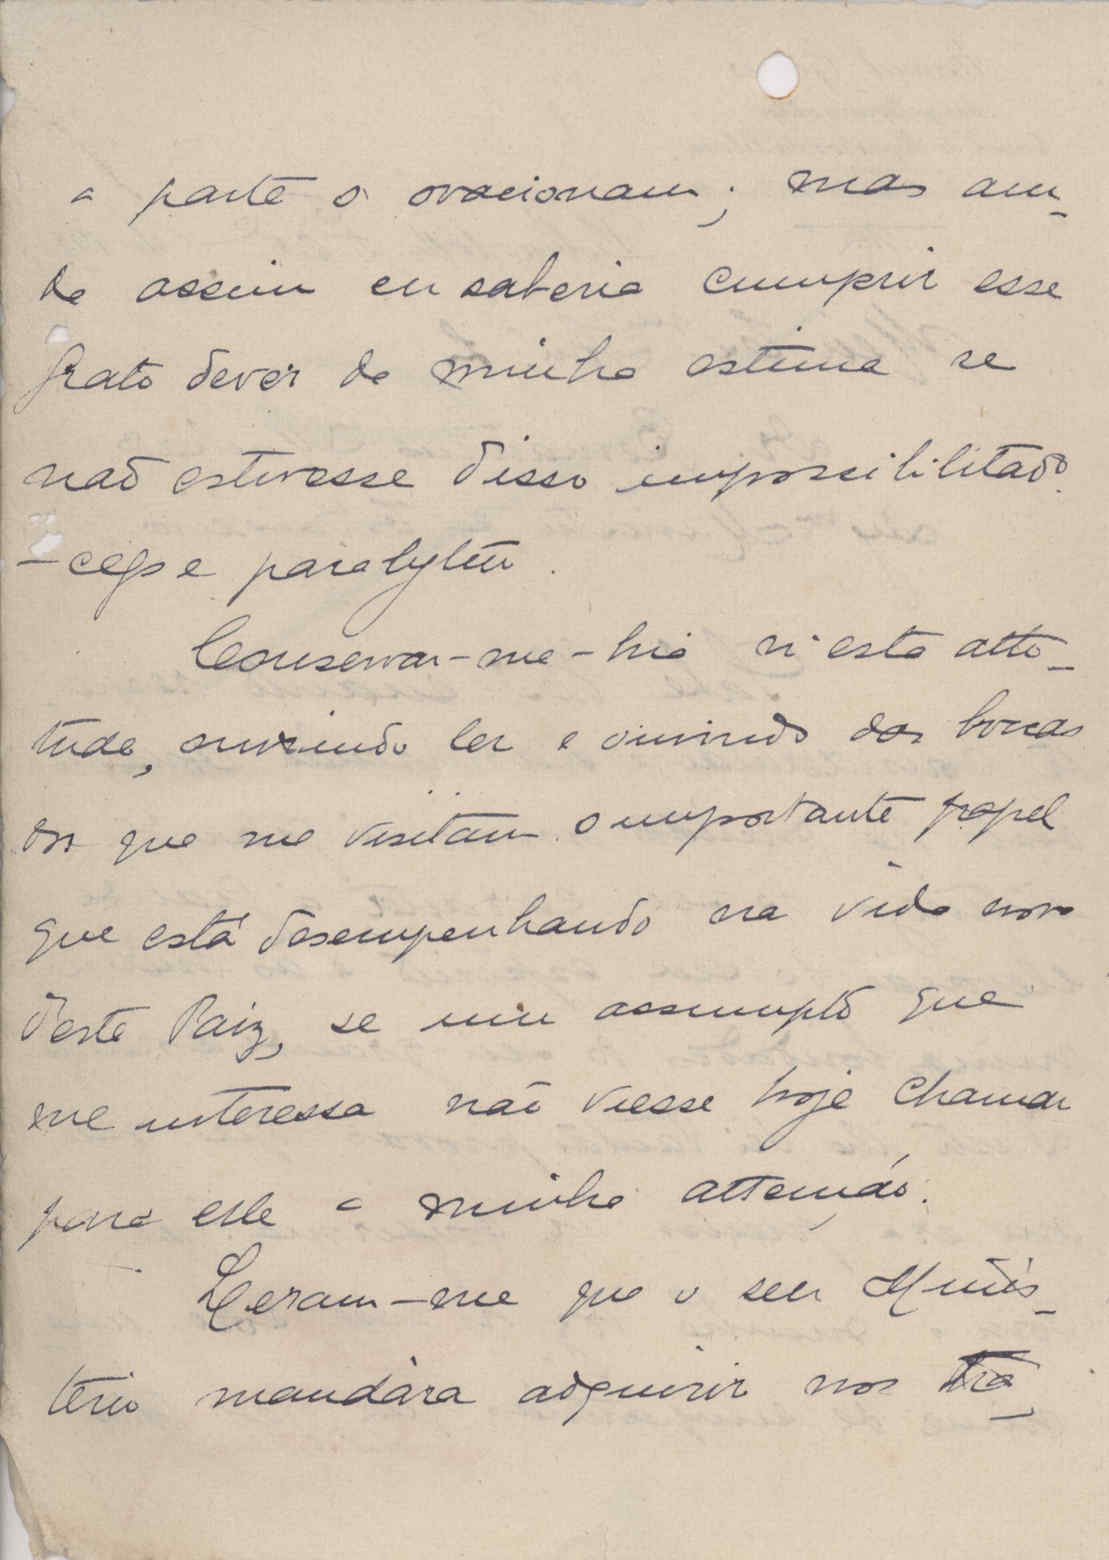 a parte o ovacionam; mas ain-
da assim eu saberia cumprir esse
grato dever da minha estima se
não estivesse disso impossibilitado
- cego e paralytico.
Conservar-me-hia n'esta atti-
tude, ouvindo ler e ouvindo das bocas
dos que me visitam o importante papel
que está desempenhando na vida nova
d'este Paiz, se um assumpto que
me interessa não viesse hoje chamar
para elle a minha attenção.
Leram-me que o seu Minis-
terio mandára adquirir nos Tra-